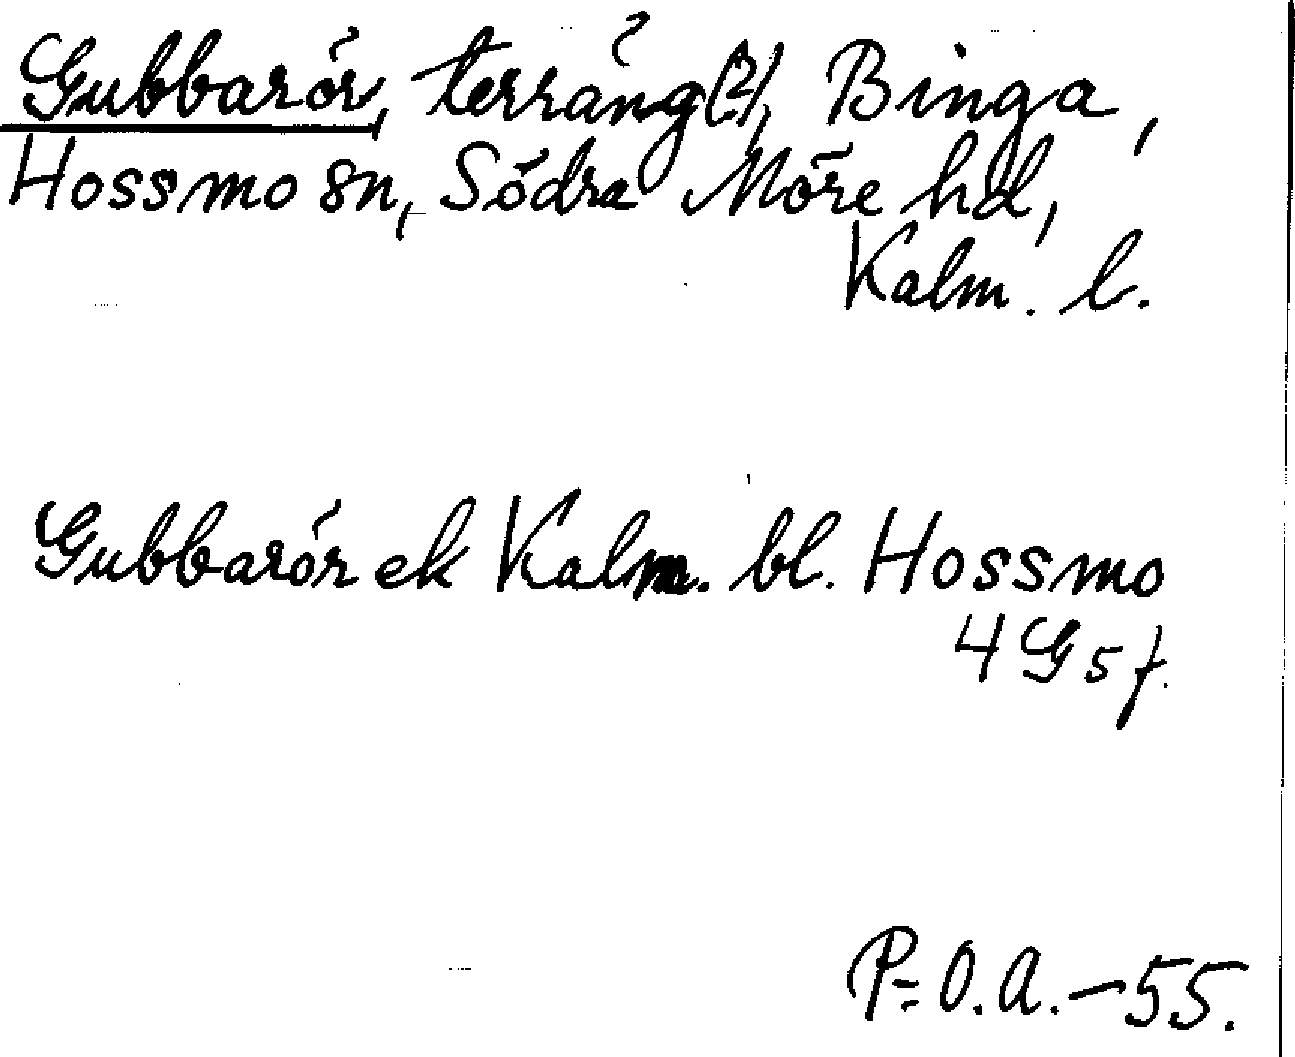 Gubbarör, terräng(?), Binga,
Hossmo sn, Södra Möre hd,
Kalm. l.
Gubbarör ek Kalm. bl. Hossmo
4 G 5 f.
P-O.A.-55.